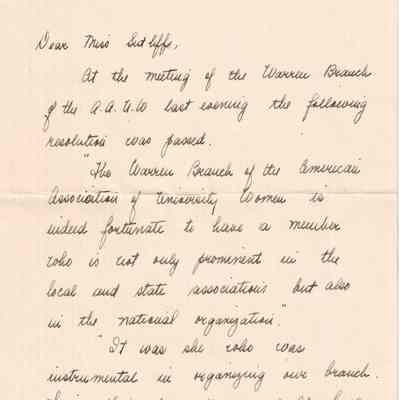 Dear Miss Sutliffe,
At the meeting of the Warren Branch
of the A.A.U.W last evening the following
resolution was passed.
"The Warren Branch of the American
Association of University Women is
indeed fortunate to have a member
who is not only prominent in the
local and state associations but also
in the national organization."
"It was she who was
instrumental in organizing our branch.